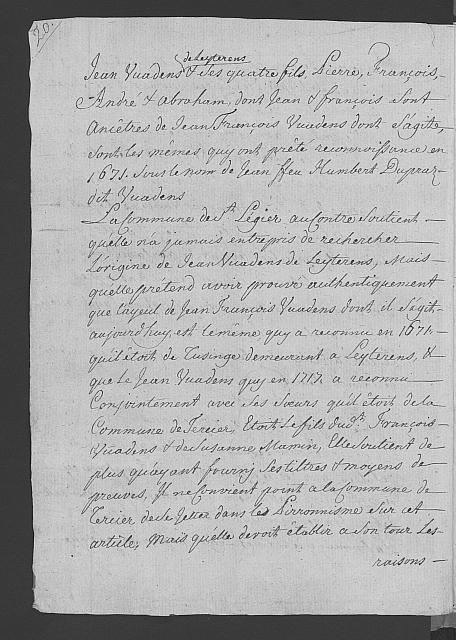 20.
de Leyterens
Jean Vuadens & ses quatre fils, Pierre, François,
André & abraham, dont Jean & françois sont
Ancêtres de Jean François Vuadens dont s'agite,
sont les mêmes quy ont prêté reconnoissance en
1671. sous le nom de Jean ffeu Humbert Dupraz
dit Vuadens
La Commune de St. Légier au Contre soutient
quelle n'a jamais entrepris de rechercher
L'origine de Jean Vuadens de Leyterens, Mais
quelle prétend avoir prouvé authentiquement
que layeul de Jean François Vuadens dont il s'agit
aujourdhuy, est le même quy a reconnu en 1671.
quil étoit de Tusinge demeurant a Leyterens, &
que Le Jean Vuadens quy en 1717. a reconnu
Conjointement avec ses Sœurs quil étoit de la
Commune de Tercier, Etoit Le fils dudt. François
Vuadens & de Susanne Mamin, Elle soutient de
plus quayant fourny ses titres & moyens de
preuves, Il ne Convient point a la Commune de
Tercier de se Jetter dans le Pirronisme sur cet
article, Mais quelle devoit établir a son tour Les
raisons